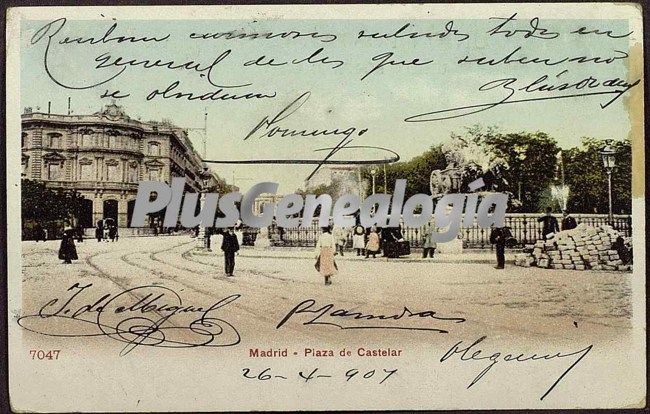 Reciban cariñosos saludos todos en
general de los que suben no
se olvidan
Domingo
PlusGenealogía
J. de Miguel
7047
Madrid - Plaza de Castelar
26-4-907